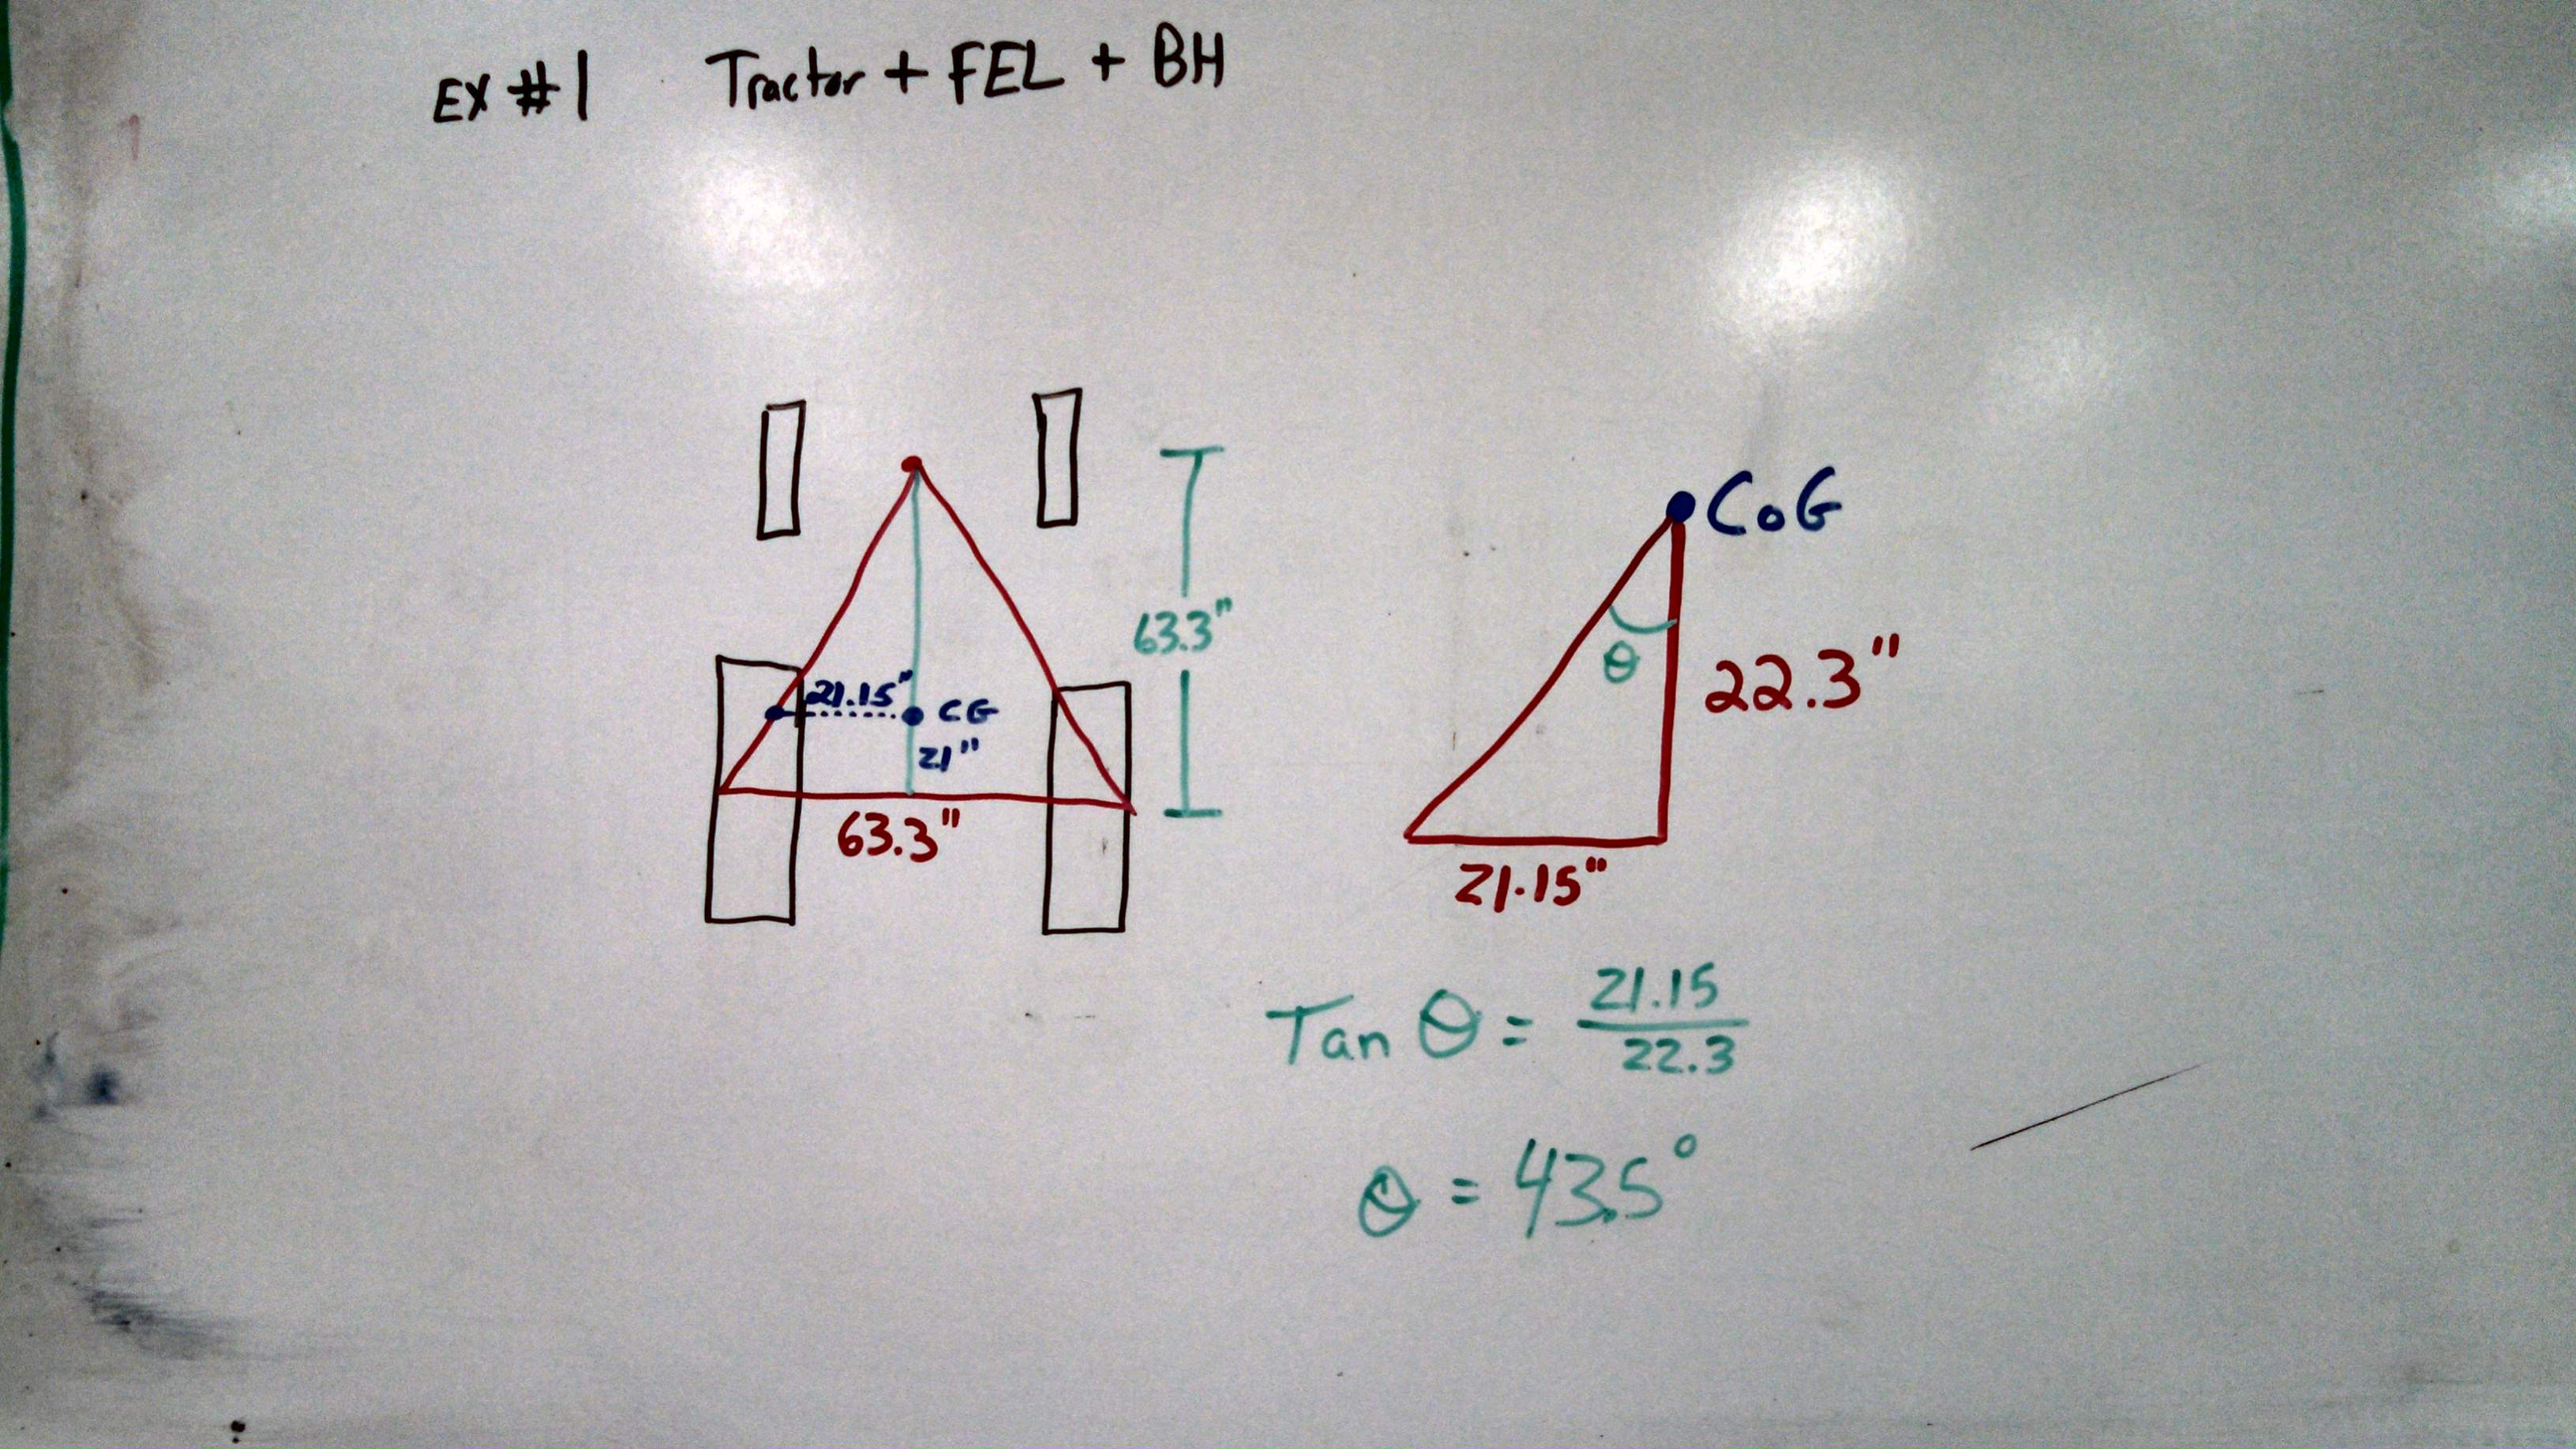 EX #1 Tractor + FEL + BH
63.3"
21.15"
CG
21"
63.3"
CoG
θ
22.3"
21.15"
Tan θ = 21.15 / 22.3
θ = 43.5°